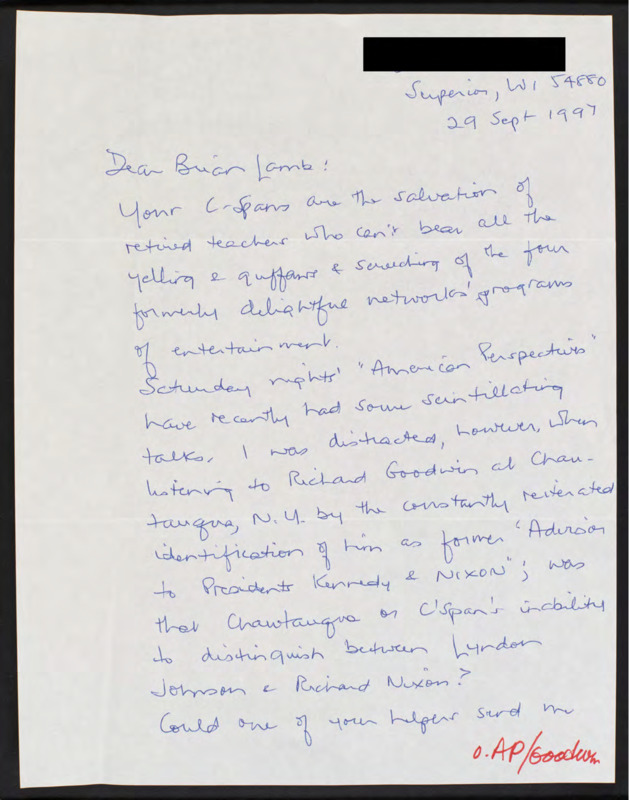 Superior, WI 54880
29 Sept 1997
Dear Brian Lamb:
Your C-Spans are the salvation of
retired teachers who can't bear all the
yelling & guffaws & screeching of the four
formerly delightful networks' programs
of entertainment.
Saturday nights' "American Perspectives"
have recently had some scintillating
talks. I was distracted, however, when
listening to Richard Goodwin at Chau-
tauqua, N.Y. by the constantly reiterated
identification of him as former "Advisor
to Presidents Kennedy & NIXON"; was
that Chautauqua or C'Span's inability
to distinguish between Lyndon
Johnson & Richard Nixon?
Could one of your helpers send me
O.AP/Goodwin